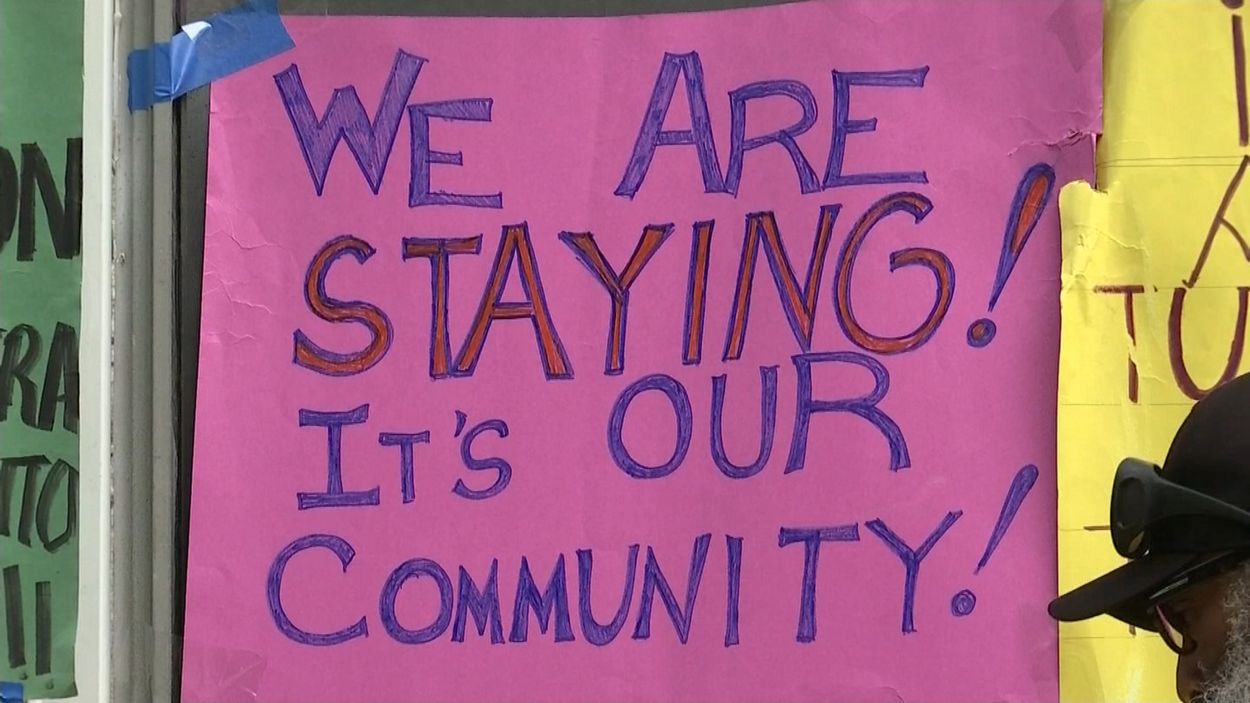 WE ARE
STAYING!
IT'S OUR
COMMUNITY!
ON
RA
TTO
!!
TU